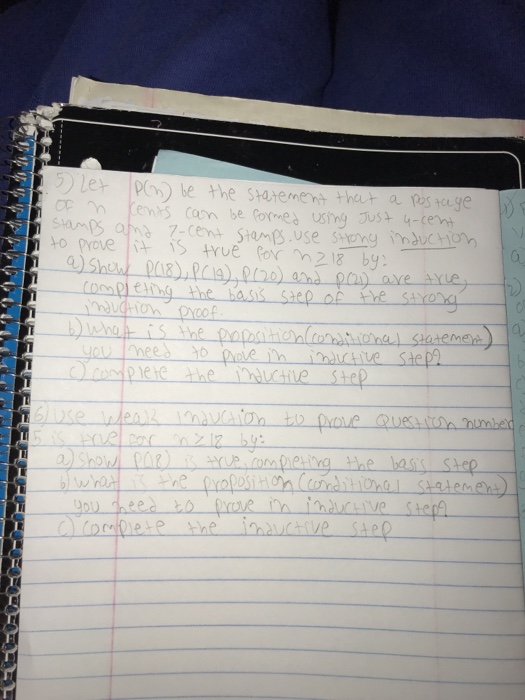 5) Let P(n) be the statement that a postage
of n cents can be formed using Just 4-cent
stamps and 7-cent stamps. use strong induction
to prove it is true for n ≥ 18 by:
a) show P(18), P(19), P(20) and P(21) are true,
completing the basis step of the strong
induction proof.
b) what is the proposition (conditional statement)
you need to prove in inductive step?
c) complete the inductive step
6) Use weak induction to prove question number
5 is true for n ≥ 18 by:
a) show P(18) is true, completing the basis step
b) what is the proposition (conditional statement)
you need to prove in inductive step?
c) complete the inductive step